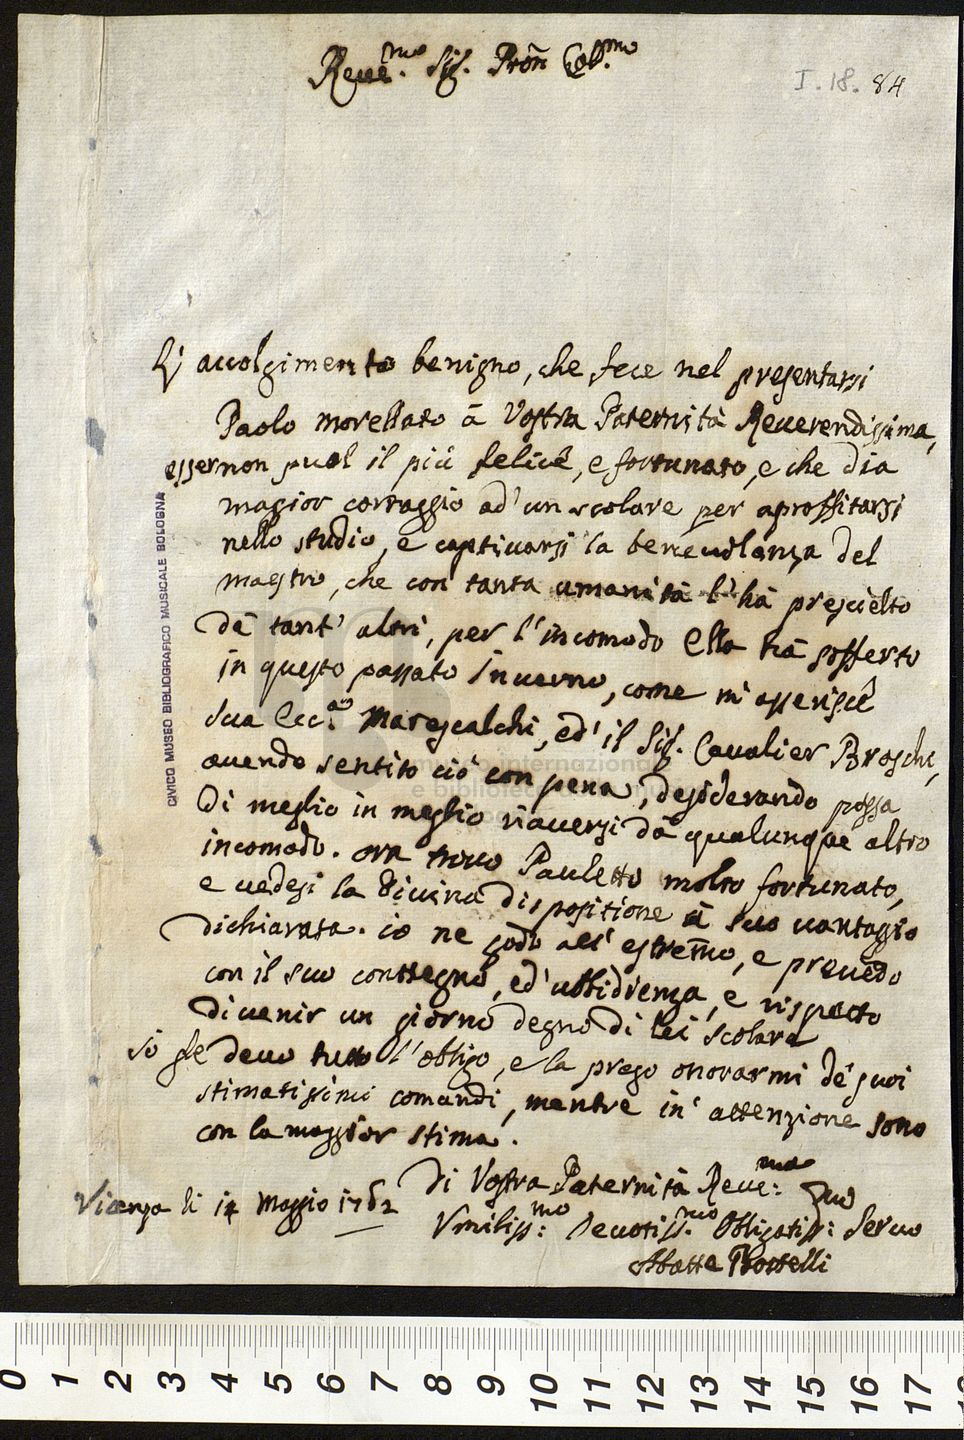 Reue.mo Sig. Pron Col.mo
I.18. 84
L' accolgimento benigno, che fece nel presentarsi
Paolo morellato à Vostra Paternità Reuerendissima,
esser non puol il più felice, e fortunato, e che dia
magior corraggio ad' un scolare per aproffitarsi
nello studio, e captiuarsi la beneuolanza del
maestro, che con tanta umanità l' hà prescielto
dà tant' altri, per l' incomodo Ella hà sofferto
in questo passato Inuerno, come m' asserisce
sua Ecc.a Marescalchi, ed' il Sig. Caualier Broschi,
auendo sentito ciò con pena, desiderando possa
di meglio in meglio riauersi dà qualunque altro
incomodo. ora trouo Pauletto molto fortunato,
e uedesi la diuina dispositione à suo uantaggio
dichiarata. io ne godo all' estremo, e preuedo
con il suo conttegno, ed' ubbidienza, e rispetto
diuenir un giorno degno di lei scolare
Io gle deuo tutto l' obligo, e la prego onorarmi de' suoi
stimatissimi comandi, mentre in' attenzione sono
con la maggior stima.
Di Vostra Paternità Reue:ma
Vicenza li 14 Maggio 1762
Vmiliss:mo Deuotiss.mo Obligatiss: Seruo
Abatte
CIVICO MUSEO BIBLIOGRAFICO MUSICALE BOLOGNA
museo internazionale
e biblioteca della musica
0 1 2 3 4 5 6 7 8 9 10 11 12 13 14 15 16 17